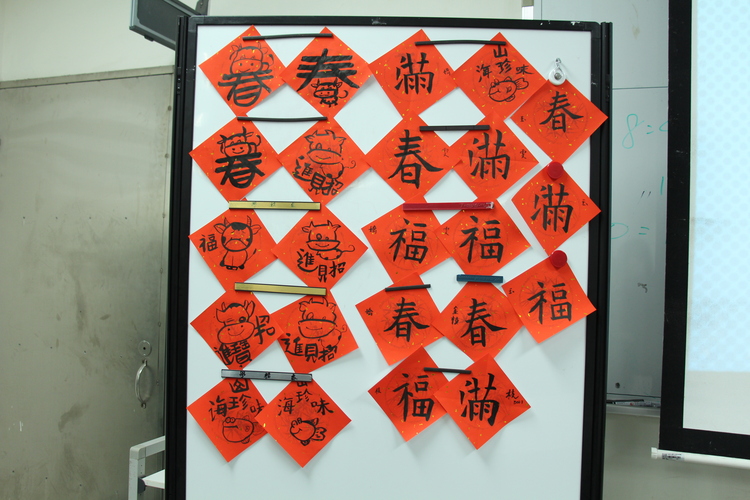 春
春
滿
山
海珍味
春
春
進見招
春
滿
滿
福
進見招
福
福
福
進見招
春
春
海珍味
海珍味
福
滿
8=